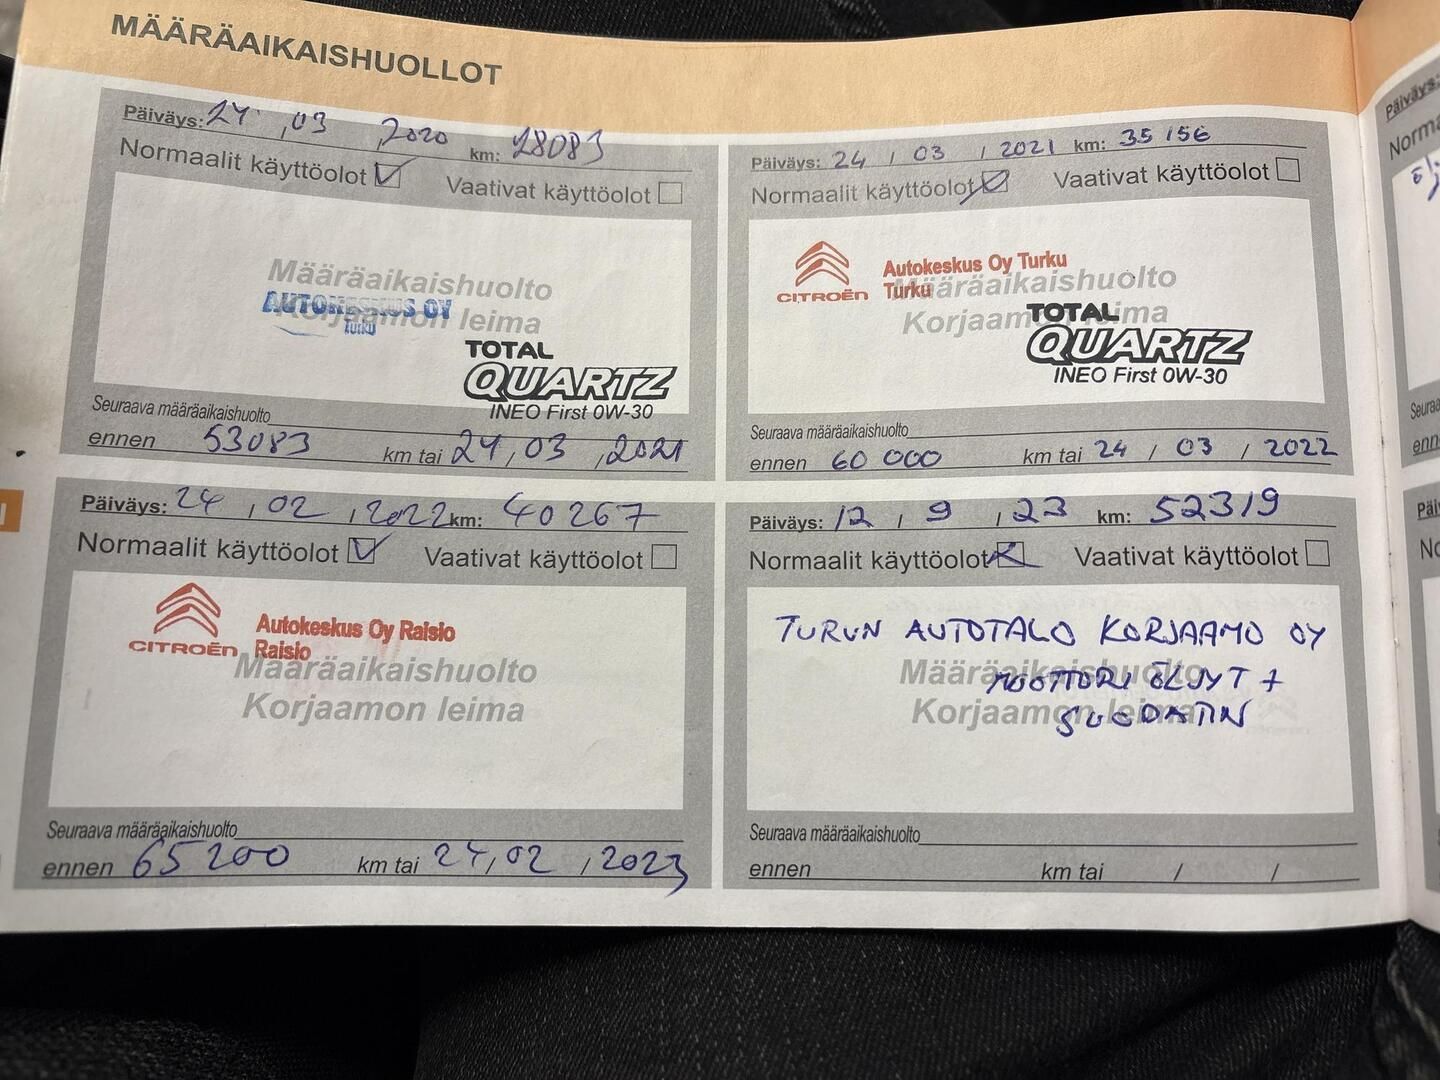 MÄÄRÄAIKAISHUOLLOT
Päiväys: 24 , 03 , 2020 km: 28083
Normaalit käyttöolot Vaativat käyttöolot
Määräaikaishuolto
AUTOKESKUS OY
Korjaamon leima
Turku
TOTAL
QUARTZ
INEO First 0W-30
Seuraava määräaikaishuolto
ennen 53083 km tai 24, 03 , 2021
Päiväys: 24 / 03 / 2021 km: 35 156
Normaalit käyttöolot Vaativat käyttöolot
CITROËN
Autokeskus Oy Turku
Turku
Määräaikaishuolto
Korjaamon leima
TOTAL
QUARTZ
INEO First 0W-30
Seuraava määräaikaishuolto
ennen 60 000 km tai 24 / 03 / 2022
Päiväys: 24 , 02 , 2022 km: 40 267
Normaalit käyttöolot Vaativat käyttöolot
CITROËN
Autokeskus Oy Raisio
Raisio
Määräaikaishuolto
Korjaamon leima
Seuraava määräaikaishuolto
ennen 65 200 km tai 24, 02 , 2023
Päiväys: 12 , 9 , 23 km: 52319
Normaalit käyttöolot Vaativat käyttöolot
TURUN AUTOTALO KORJAAMO OY
Määräaikaishuolto
MOOTTORI ÖLJYT +
Korjaamon leima
SUODATIN
Seuraava määräaikaishuolto
ennen km tai / /
Päiväys: